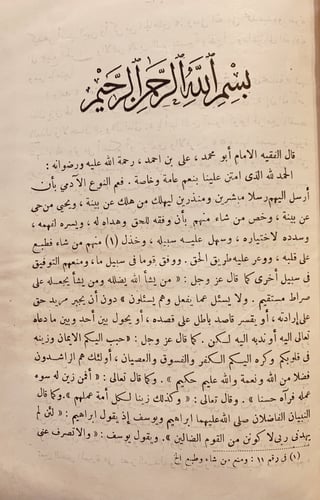 بِسْمِ ٱللَّهِ ٱلرَّحْمَٰنِ ٱلرَّحِيْمِ
قال الفقيه الامام أبو محمد، على بن احمد، رحمة الله عليه ورضوانه :
الحمد لله الذى امتن علينا بنعم عامة وخاصة . فعم النوع الآدمي بأن
أرسل اليهم رسلا مبشرين ومنذرين ليهلك من هلك عن بينة، ويحيى من حى
عن بينة ، وخص من شاء منهم بأن وفقه للحق وهداه له ، ويسره لفهمه ،
وسدده لاختياره ، وسهل عليـه سبيله ، وخذل (١) منهم من شاء فطبع
على قلبه ، ووعر عليه طريق الحق . ووفق قوما فى سبيل ما، ومنعهم التوفيق
فى سبيل أخرى كما قال عز وجل : « من يشأ الله يضلله ومن يشأ يجعله على
صراط مستقيم . ولا يسئل عما يفعل وهم يسئلون » دون أن يجبر مريد حق
على إرادته ، أو يقسر قاصد باطل على قصده ، أو يحول بين أحد وبين ما دعاه
تعالى اليه أو ندبه اليه لكن. كما قال عز وجل : «حبب اليكم الايمان وزينه
فى قلوبكم وكره اليكم الكفر والفسوق والعصيان، أولئك هم الراشدون
فضلا من الله ونعمة والله عليم حكيم » . وكما قال تعالى : « أفمن زين له سوء
عمله فرآه حسنا » . وقال تعالى : « وكذلك زينا لكل أمة عملهم ». وكما قال
النبيان الفاضلان صلى الله عليهما ابراهيم ويوسف إذ يقول ابراهيم : « لئن لم
يهدنى ربى لا كونن من القوم الضالين ». ويقول يوسف : « والا تصرف عنى
(١) فى رقم ١١ : ومنع من شاء وطبع الخ